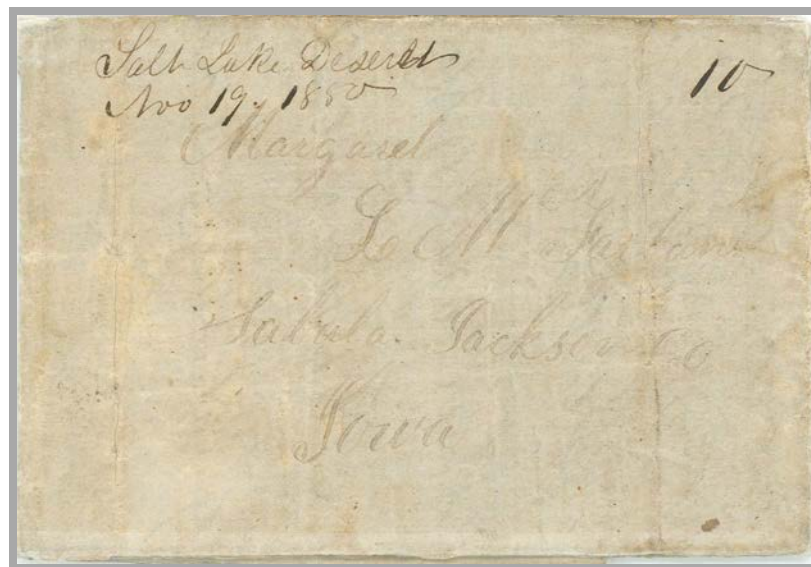 Salt Lake Deseret
Nov 19, 1850
10
Margaret
L Mc
Sabula Jackson Co
Iowa